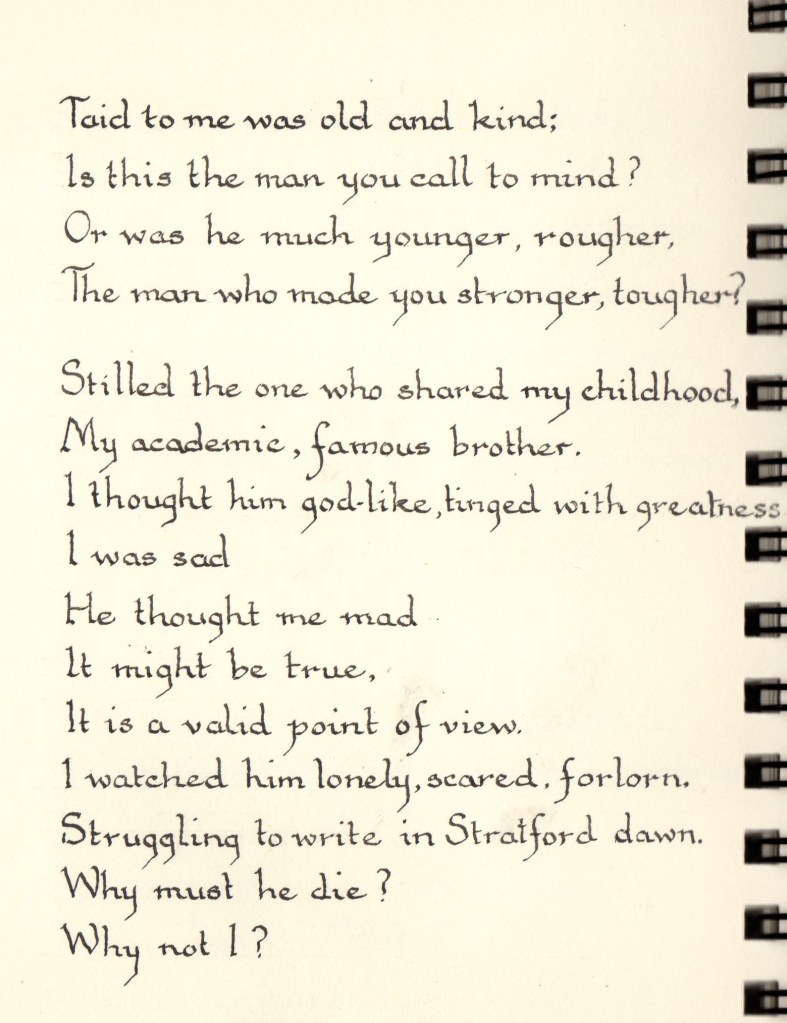 Taid to me was old and kind;
Is this the man you call to mind?
Or was he much younger, rougher,
The man who made you stronger, tougher?
Stilled the one who shared my childhood,
My academic, famous brother.
I thought him god-like, tinged with greatness
I was sad
He thought me mad
It might be true,
It is a valid point of view.
I watched him lonely, scared, forlorn.
Struggling to write in Stratford dawn.
Why must he die?
Why not I?